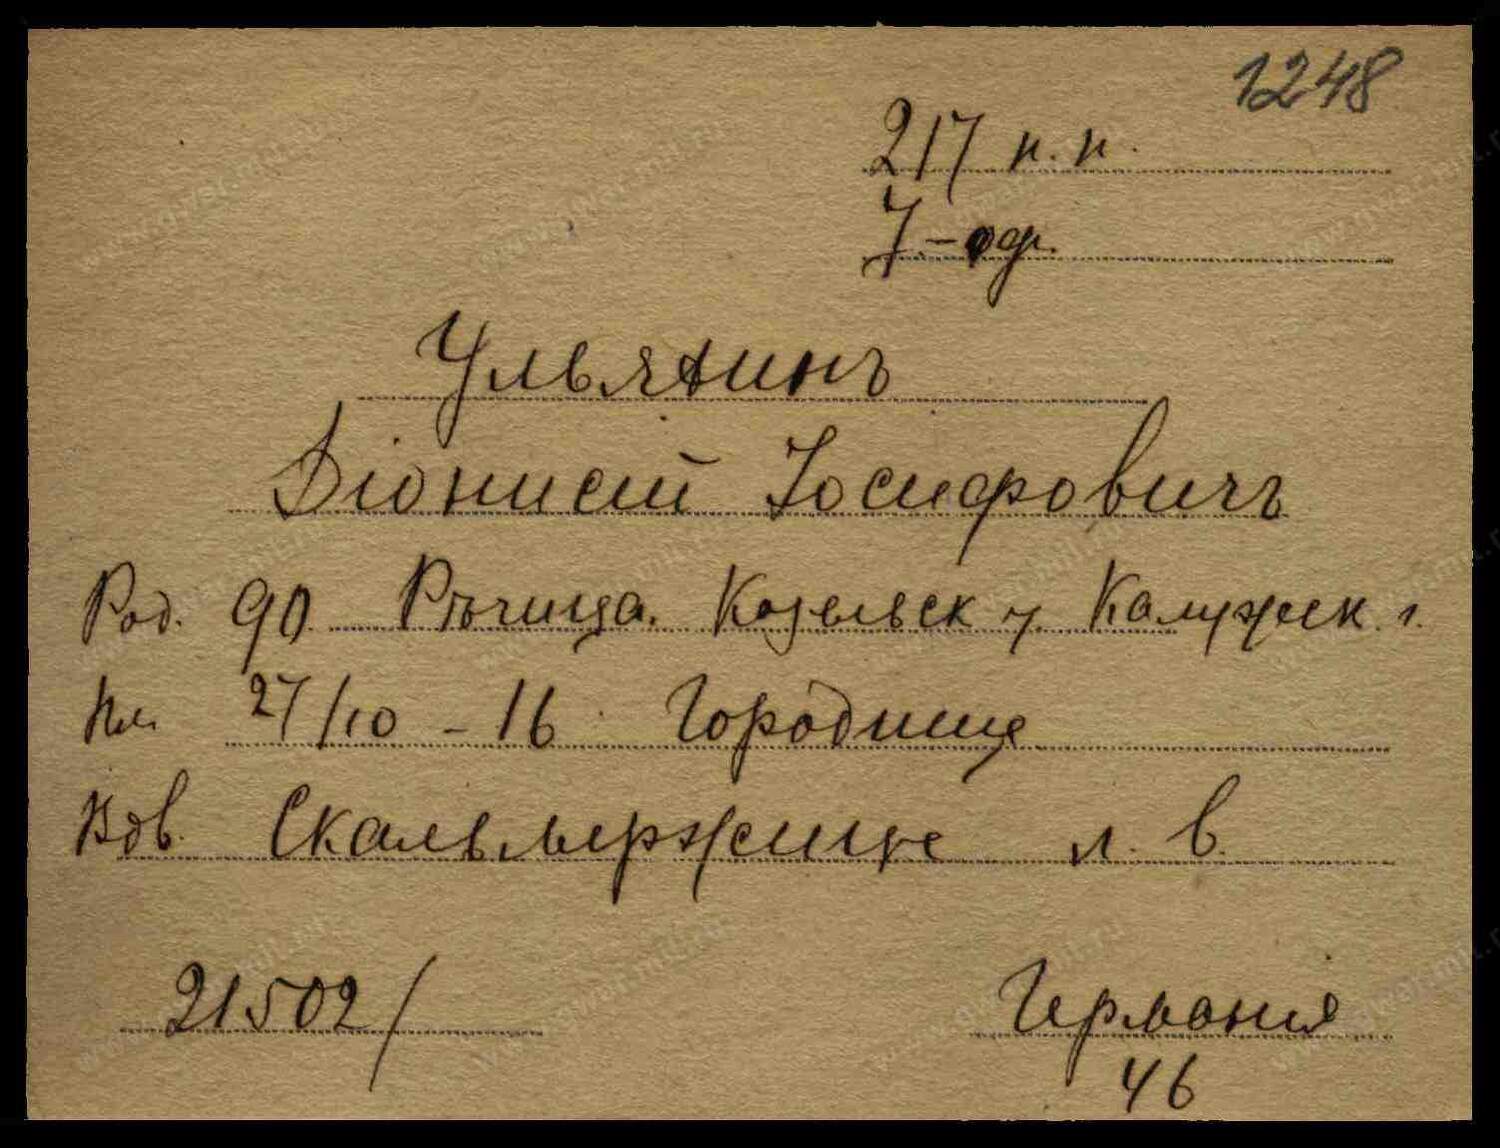 1248
217 п. п.
7-рф.
Ульянинъ
Діонисій Іосифовичъ
Род. 90 Рѣчица. Козельск у. Калужск. г.
Пл. 27/10 - 16 Городище
Скальмержице л. в.
21502/
Германія
46